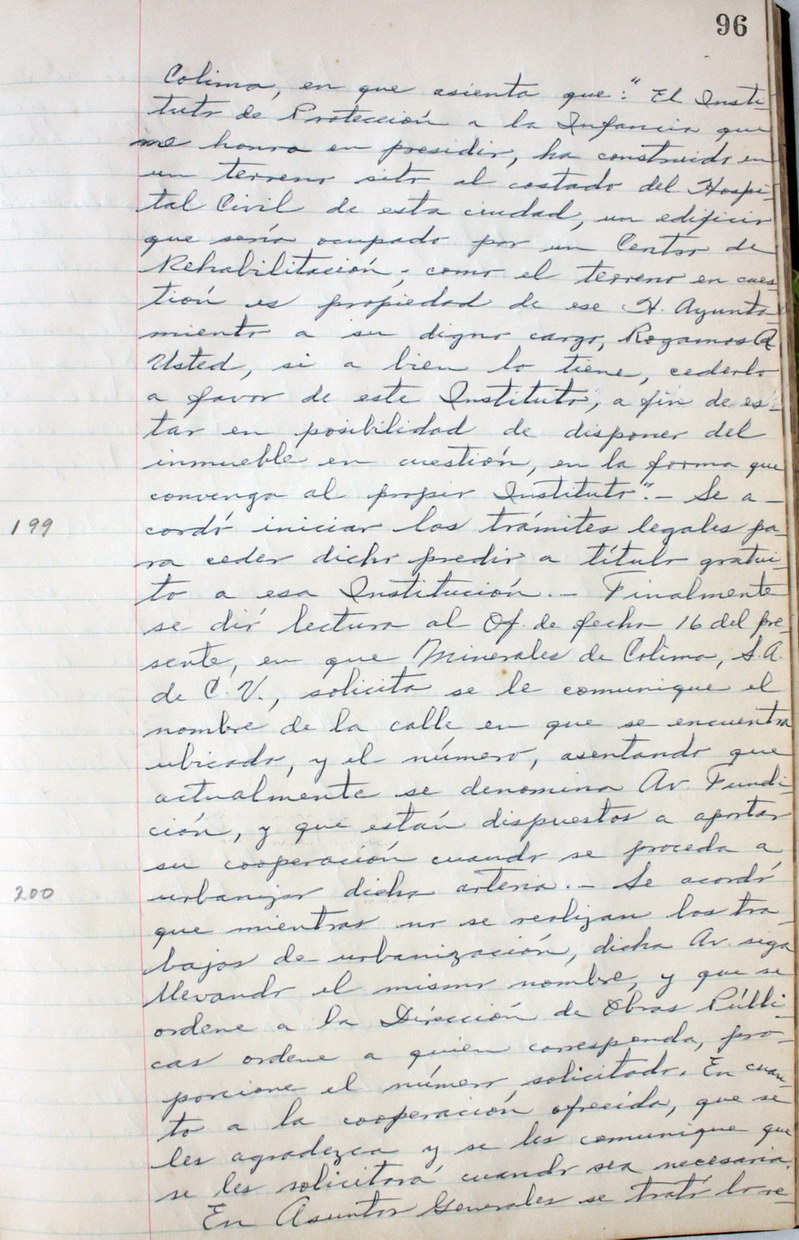 96
Colima, en que asienta que: "El Insti-
tuto de Protección a la Infancia que
me honro en presidir, ha construido en
un terreno sito al costado del Hospi-
tal Civil de esta ciudad, un edificio
que sería ocupado por un Centro de
Rehabilitación; como el terreno en cues
tión es propiedad de ese H. Ayunta-
miento a su digno cargo, Rogamos A
Usted, si a bien lo tiene, cederlo
a favor de este Instituto, a fin de es-
tar en posibilidad de disponer del
inmueble en cuestión, en la forma que
convenga al propio Instituto".- Se a-
199 cordó iniciar los trámites legales pa-
ra ceder dicho predio a título gratui-
to a esa Institución.- Finalmente
se dió lectura al Of. de fecha 16 del pre-
sente, en que Minerales de Colima, S.A.
de C.V., solicita se le comunique el
nombre de la calle en que se encuentra
ubicada, y el número, asentando que
actualmente se denomina Av. Fundi-
ción, y que están dispuestos a aportar
su cooperación cuando se proceda a
200 urbanizar dicha arteria.- Se acordó
que mientras no se realizan los tra-
bajos de urbanización, dicha Av. siga
llevando el mismo nombre, y que se
ordene a la Dirección de Obras Públi-
cas ordene a quien corresponda, pro-
porcione el número solicitado. En cuan-
to a la cooperación ofrecida, que se
les agradezca y se les comunique que
se les solicitará cuando sea necesaria.
En Asuntos Generales se trató lo re-